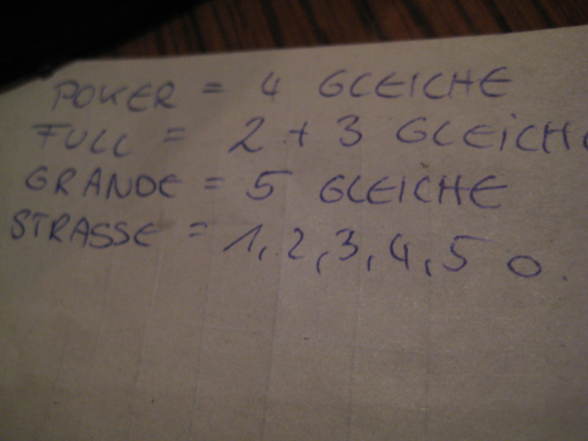 POKER = 4 GLEICHE
FULL = 2 + 3 GLEICHE
GRANDE = 5 GLEICHE
STRASSE = 1, 2, 3, 4, 5 o.